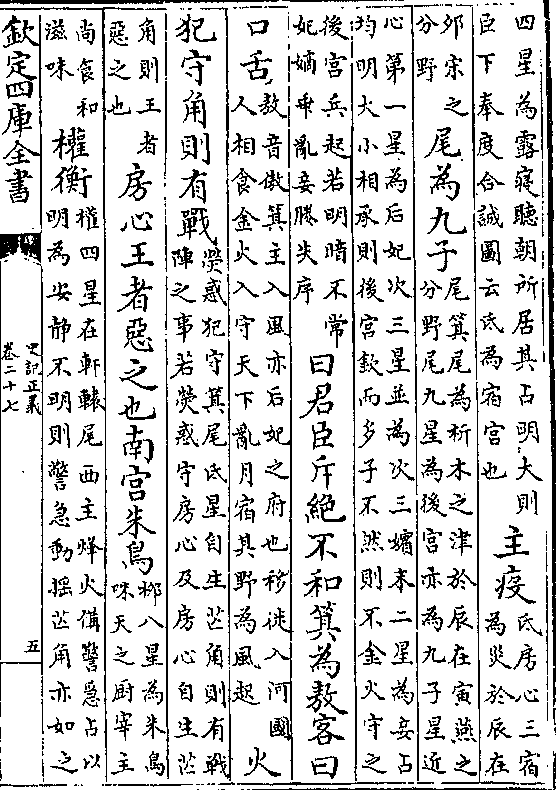 四星為露寢聽朝所居其占明大則
臣下奉度合誠圖云氐為宿宮也
主疫
氐房心三宿
為炎於辰在
夘宋之
分野
尾為九子
尾箕尾為析木之津於辰在寅燕之
分野尾九星為後宮亦為九子星近
心第一星為后妃次三星並為次三嬪末二星為妾占
均明大小相承則後宮敘而多子不然則不金火守之
後宮兵起若明暗不常
妃嫡乖亂妾媵失序
曰君臣斥絕不和箕為敖客曰
口舌
敖音傲箕主入風亦后妃之府也移徙入河國
人相食金火入守天下亂月宿其野為風起
火
犯守角則有戰
熒惑犯守箕尾氐星自生芒角則有戰
陣之事若熒惑守房心及房心自生芒
角則王者
惡之也
房心王者惡之也南宮朱鳥
栁八星為朱鳥
咮天之廚宰主
尚食和
滋味
權衡
權四星在軒轅尾西主烽火備警急占以
明為安靜不明則警急動搖芒角亦如之
欽定四庫全書
史記正義
卷二十七
五